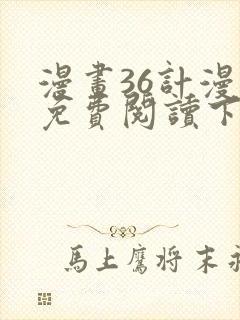 漫畫36計漫
免費閱讀下
馬上鷹将末